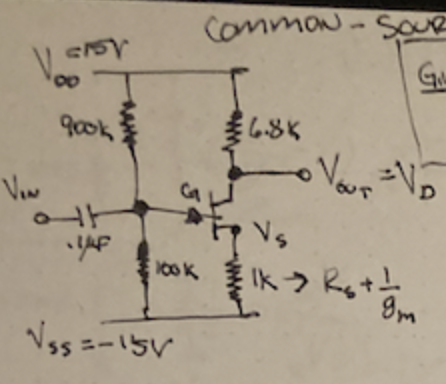 COMMON - SOUR
V_DD = 15V
900K
6.8K
V_IN
.1μF
G
V_OUT = V_D
V_S
100K
1K → R_S + 1/g_m
V_SS = -15V